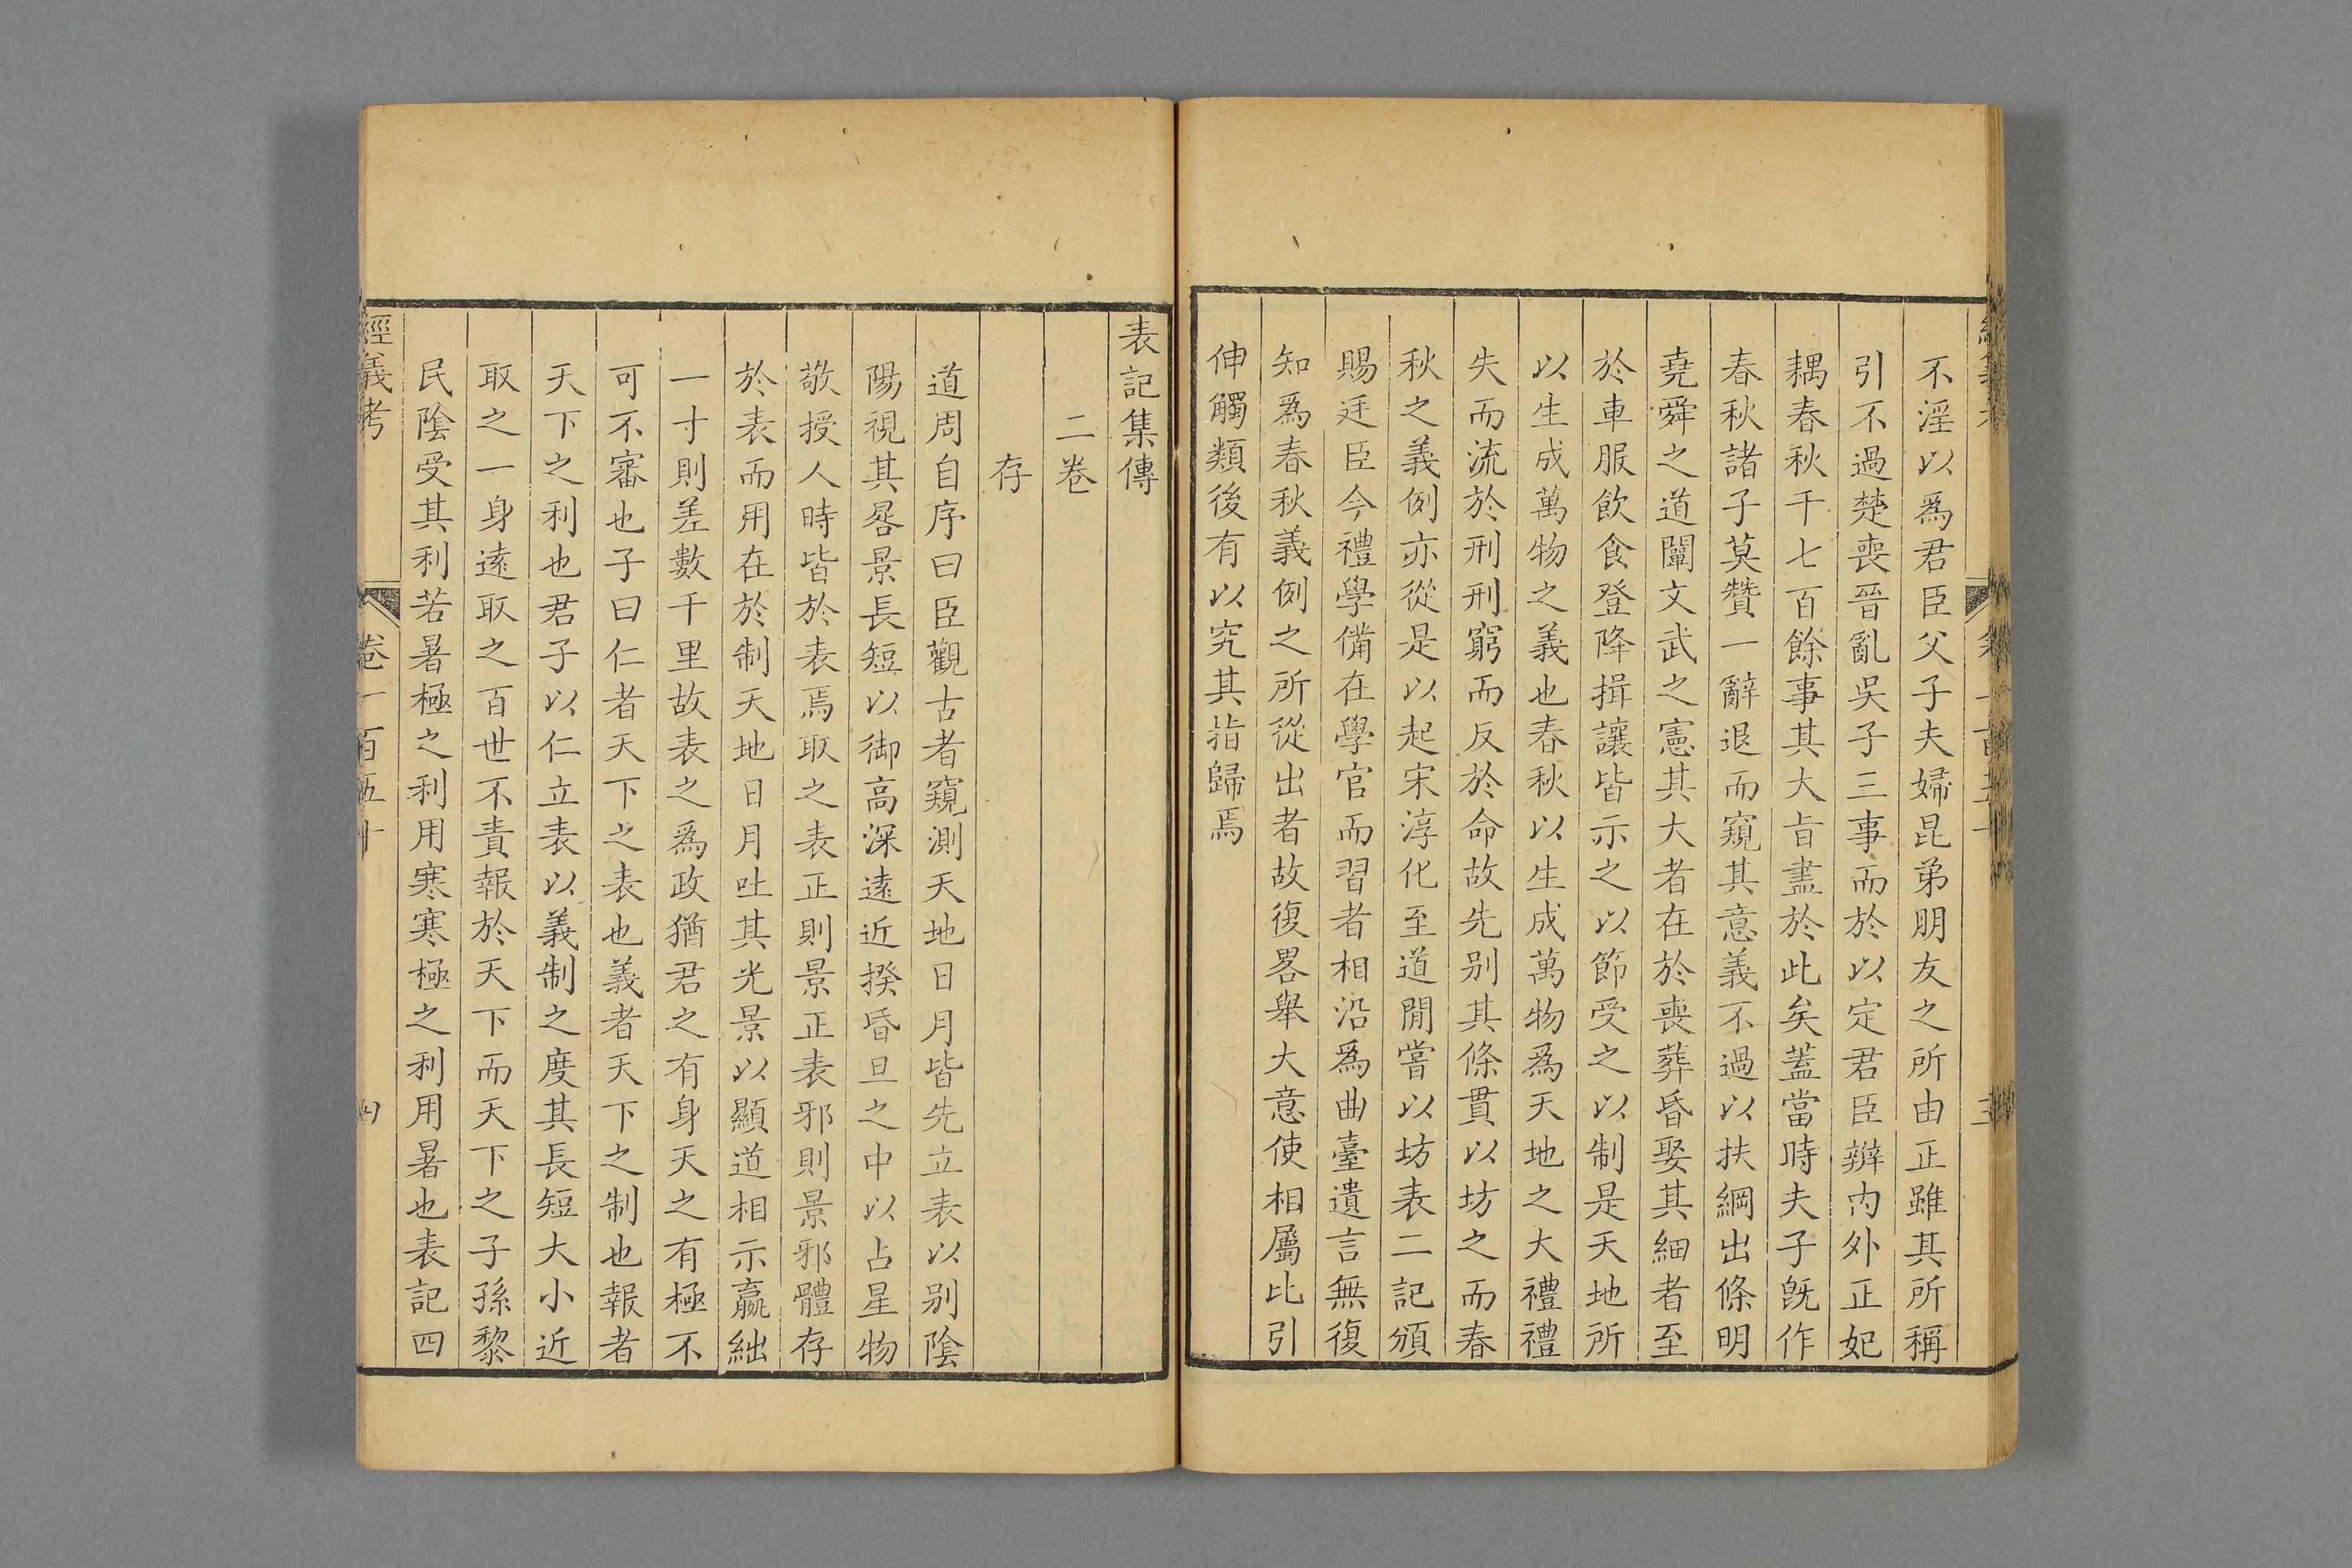 不淫以爲君臣父子夫婦昆弟朋友之所由正雖其所稱
引不過楚喪晉亂吳子三事而於以定君臣辨內外正妃
耦春秋千七百餘事其大旨盡於此矣蓋當時夫子旣作
春秋諸子莫贊一辭退而窺其意義不過以扶綱出條明
堯舜之道闡文武之憲其大者在於喪葬昏娶其細者至
於車服飮食登降揖讓皆示之以節受之以制是天地所
以生成萬物之義也春秋以生成萬物爲天地之大禮禮
失而流於刑刑窮而反於命故先別其條貫以坊之而春
秋之義例亦從是以起宋淳化至道閒嘗以坊表二記頒
賜廷臣今禮學備在學官而習者相沿爲曲臺遺言無復
知爲春秋義例之所從出者故復畧舉大意使相屬比引
伸觸類後有以究其指歸焉
表記集傳
二卷
存
道周自序曰臣觀古者窺測天地日月皆先立表以別陰
陽視其晷景長短以御高深遠近揆昏旦之中以占星物
敬授人時皆於表焉取之表正則景正表邪則景邪體存
於表而用在於制天地日月吐其光景以顯道相示嬴絀
一寸則差數千里故表之爲政猶君之有身天之有極不
可不審也子曰仁者天下之表也義者天下之制也報者
天下之利也君子以仁立表以義制之度其長短大小近
取之一身遠取之百世不責報於天下而天下之子孫黎
民陰受其利若暑極之利用寒寒極之利用暑也表記四
經義考 卷一百五十